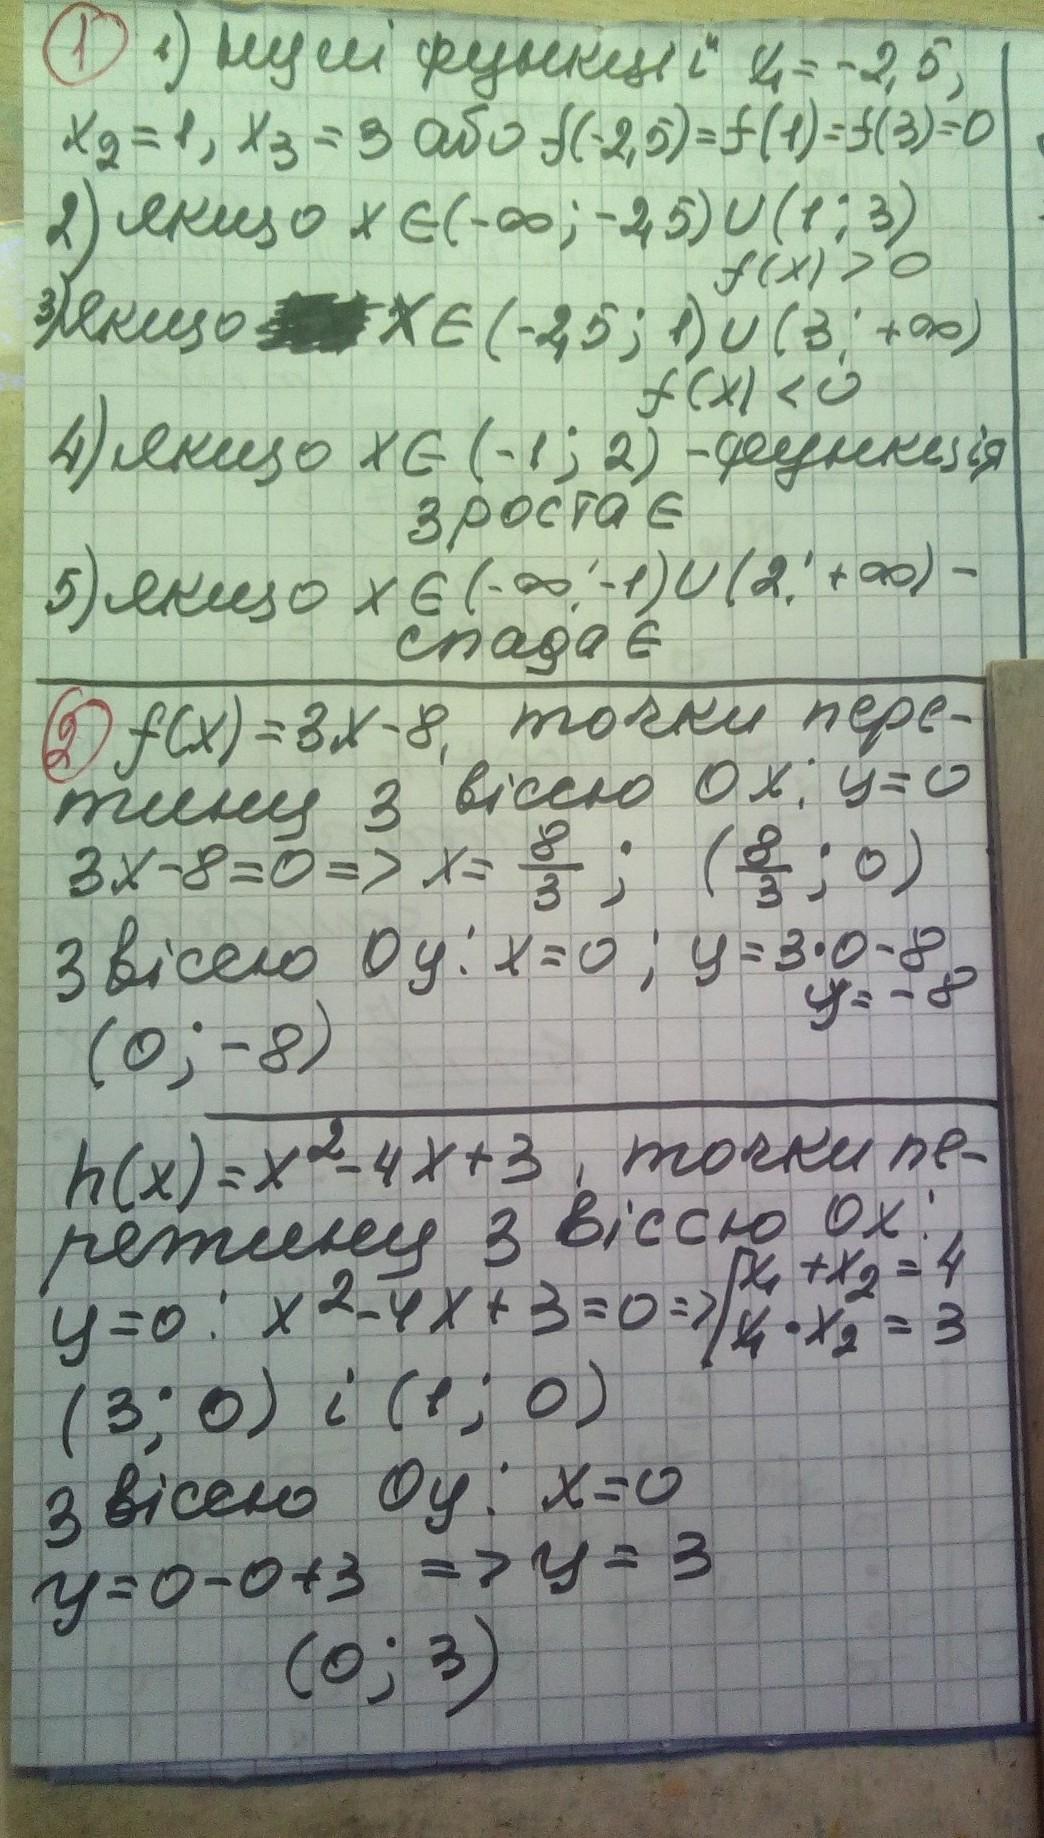 ① 1) нулі функції x₁ = -2,5,
x₂ = 1, x₃ = 3 або f(-2,5) = f(1) = f(3) = 0
2) якщо x ∈ (-∞; -2,5) ∪ (1; 3)
f(x) > 0
3) якщо x ∈ (-2,5; 1) ∪ (3; +∞)
f(x) < 0
4) якщо x ∈ (-1; 2) - функція
зростає
5) якщо x ∈ (-∞; -1) ∪ (2; +∞) -
спадає
② f(x) = 3x - 8, точки пере-
тину з віссю Ox: y = 0
3x - 8 = 0 => x = 8/3; (8/3; 0)
З віссю Oy: x = 0; y = 3·0 - 8
y = -8
(0; -8)
h(x) = x² - 4x + 3, точки пе-
ретину з віссю Ox:
y = 0: x² - 4x + 3 = 0 => { x₁ + x₂ = 4
x₁ · x₂ = 3
(3; 0) і (1; 0)
З віссю Oy: x = 0
y = 0 - 0 + 3 => y = 3
(0; 3)